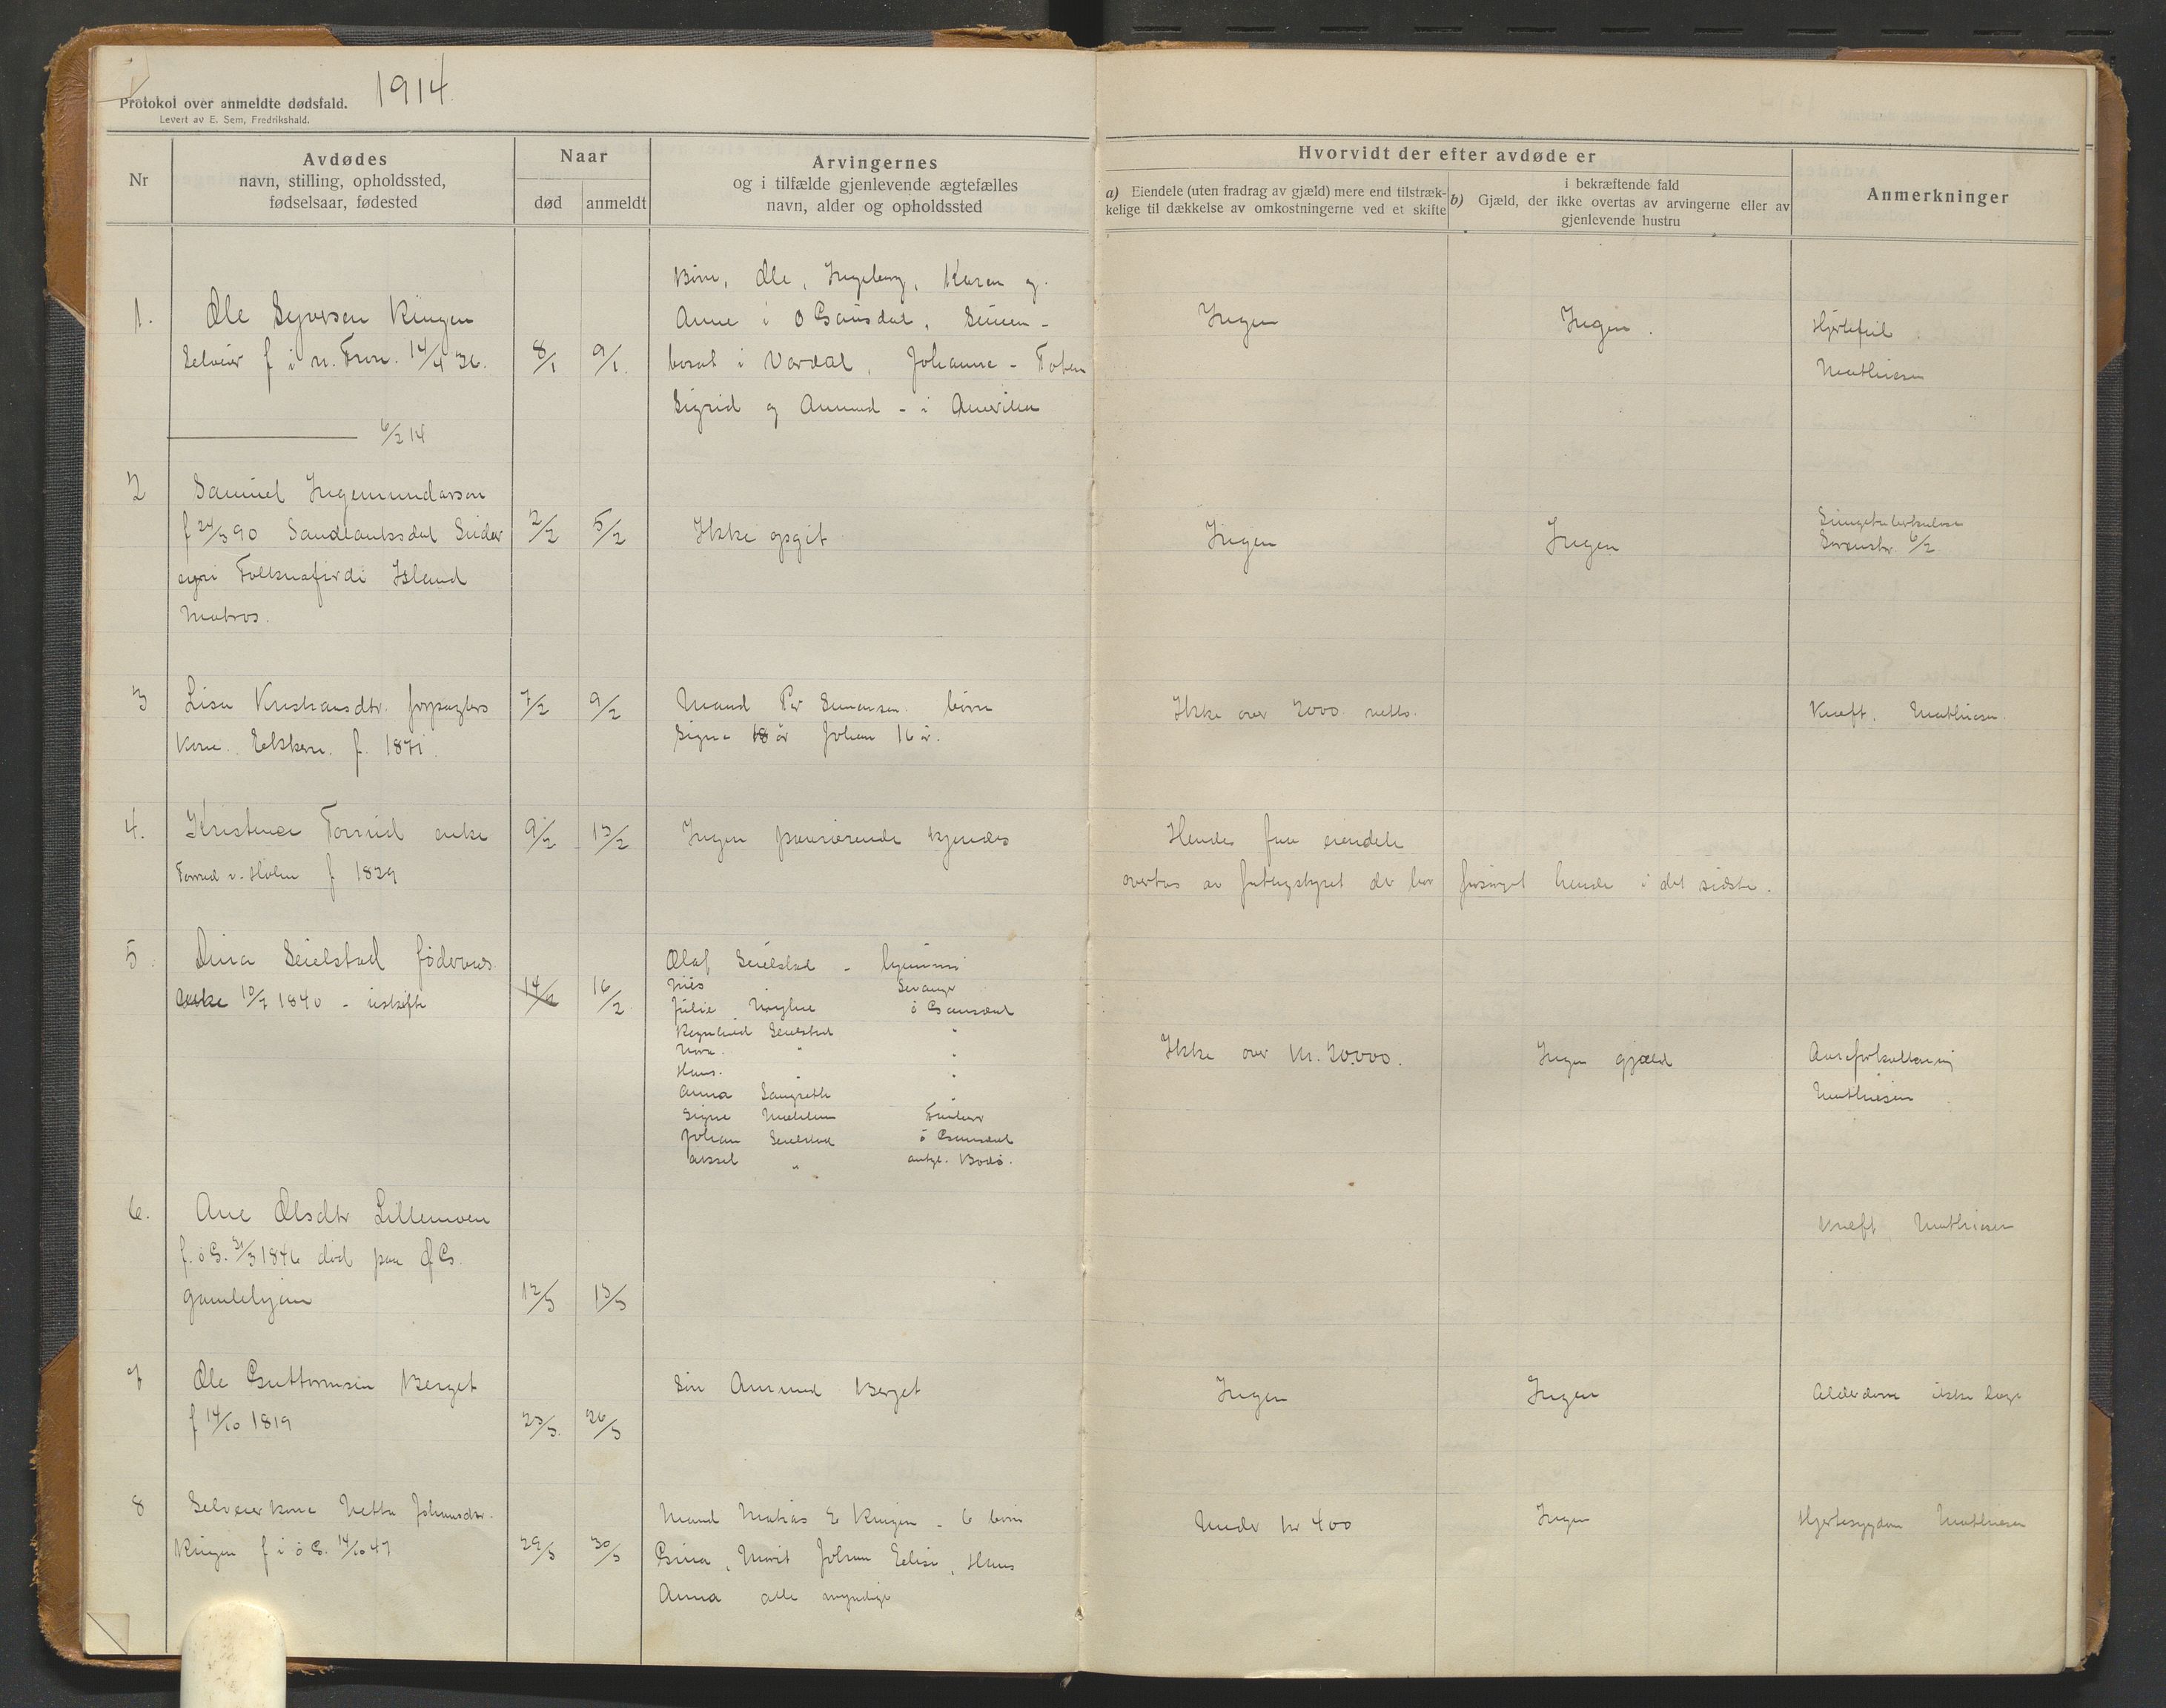 1914
Protokol over anmeldte dødsfald.
Levert av E. Sem, Fredrikshald.
Nr
Avdødes
navn, stilling, opholdssted,
fødselsaar, fødested
Naar
død
anmeldt
Arvingernes
og i tilfælde gjenlevende ægtefælles
navn, alder og opholdssted
Hvorvidt der efter avdøde er
a) Eiendele (uten fradrag av gjæld) mere end tilstræk-
kelige til dækkelse av omkostningerne ved et skifte
i bekræftende fald
b) Gjæld, der ikke overtas av arvingerne eller av
gjenlevende hustru
Anmerkninger
1.
Ole Syversen Ringen
Selveier f i n. Fron. 14/4 36.
8/1
9/1.
Børn, Ole, Ingeborg, Karen og
Anne i Ø Gausdal, Simen -
bosat i Vardal, Johanne - Toten
Sigrid og Amund - i Amerika
Ingen
Ingen.
Hjertefeil
Mathiesen
6/2 14
2
Samuel Ingemundarson
f 24/3 90
Island
Matros.
2/2
5/2
Ikke opgit
Ingen
Ingen
Lungetuberkulose
6/2
3
Lisa Kristiansdtr. forpagters
Kone. f. 1871.
7/2
9/2
Mand Per Simensen. børn
Signe 18 år Johan 16 år.
Ikke over 2000 netto.
Kræft. Mathiesen.
4.
Kristence Formid enke
f 1829
9/2
13/2
Ingen paarørende kjendes
Hendes faa eiendele
overtas av fattigstyret der har forsørget hende i det sidste.
5.
Dina Seielstad føderaads
enke 10/7 1840 - uskifte
14/2
16/2
Olaf Seielstad - hjemme
Nils Levanger
Julie Myhre ø Gausdal
Ragnhild Seielstad "
Nora. " "
Hans. " "
Anna "
Signe
Johan Seielstad ø Gausdal
Aksel " Bodø.
Ikke over kr. 20.000.
Ingen gjæld
Aareforkalkning
Mathiesen
6.
Ane Olsdtr Lillemoen
f. ø G. 31/3 1846 død paa Ø G.
gamlehjem
12/3
13/3
Kræft Mathiesen
7
Ole Guttormsen Berget
f 14/10 1819
23/3.
26/3
Søn Amund Berget
Ingen
Ingen
Alderdom ikke læge
8
Selveierkone Netta Johansdtr.
Ringen f i ø G. 14/10 47
29/3
30/3
Mand Matias E Ringen - 6 børn
Gina, Marit Johan Elise, Hans
Anna alle myndige
Under kr 400
Ingen
Hjertesygdom Mathiesen